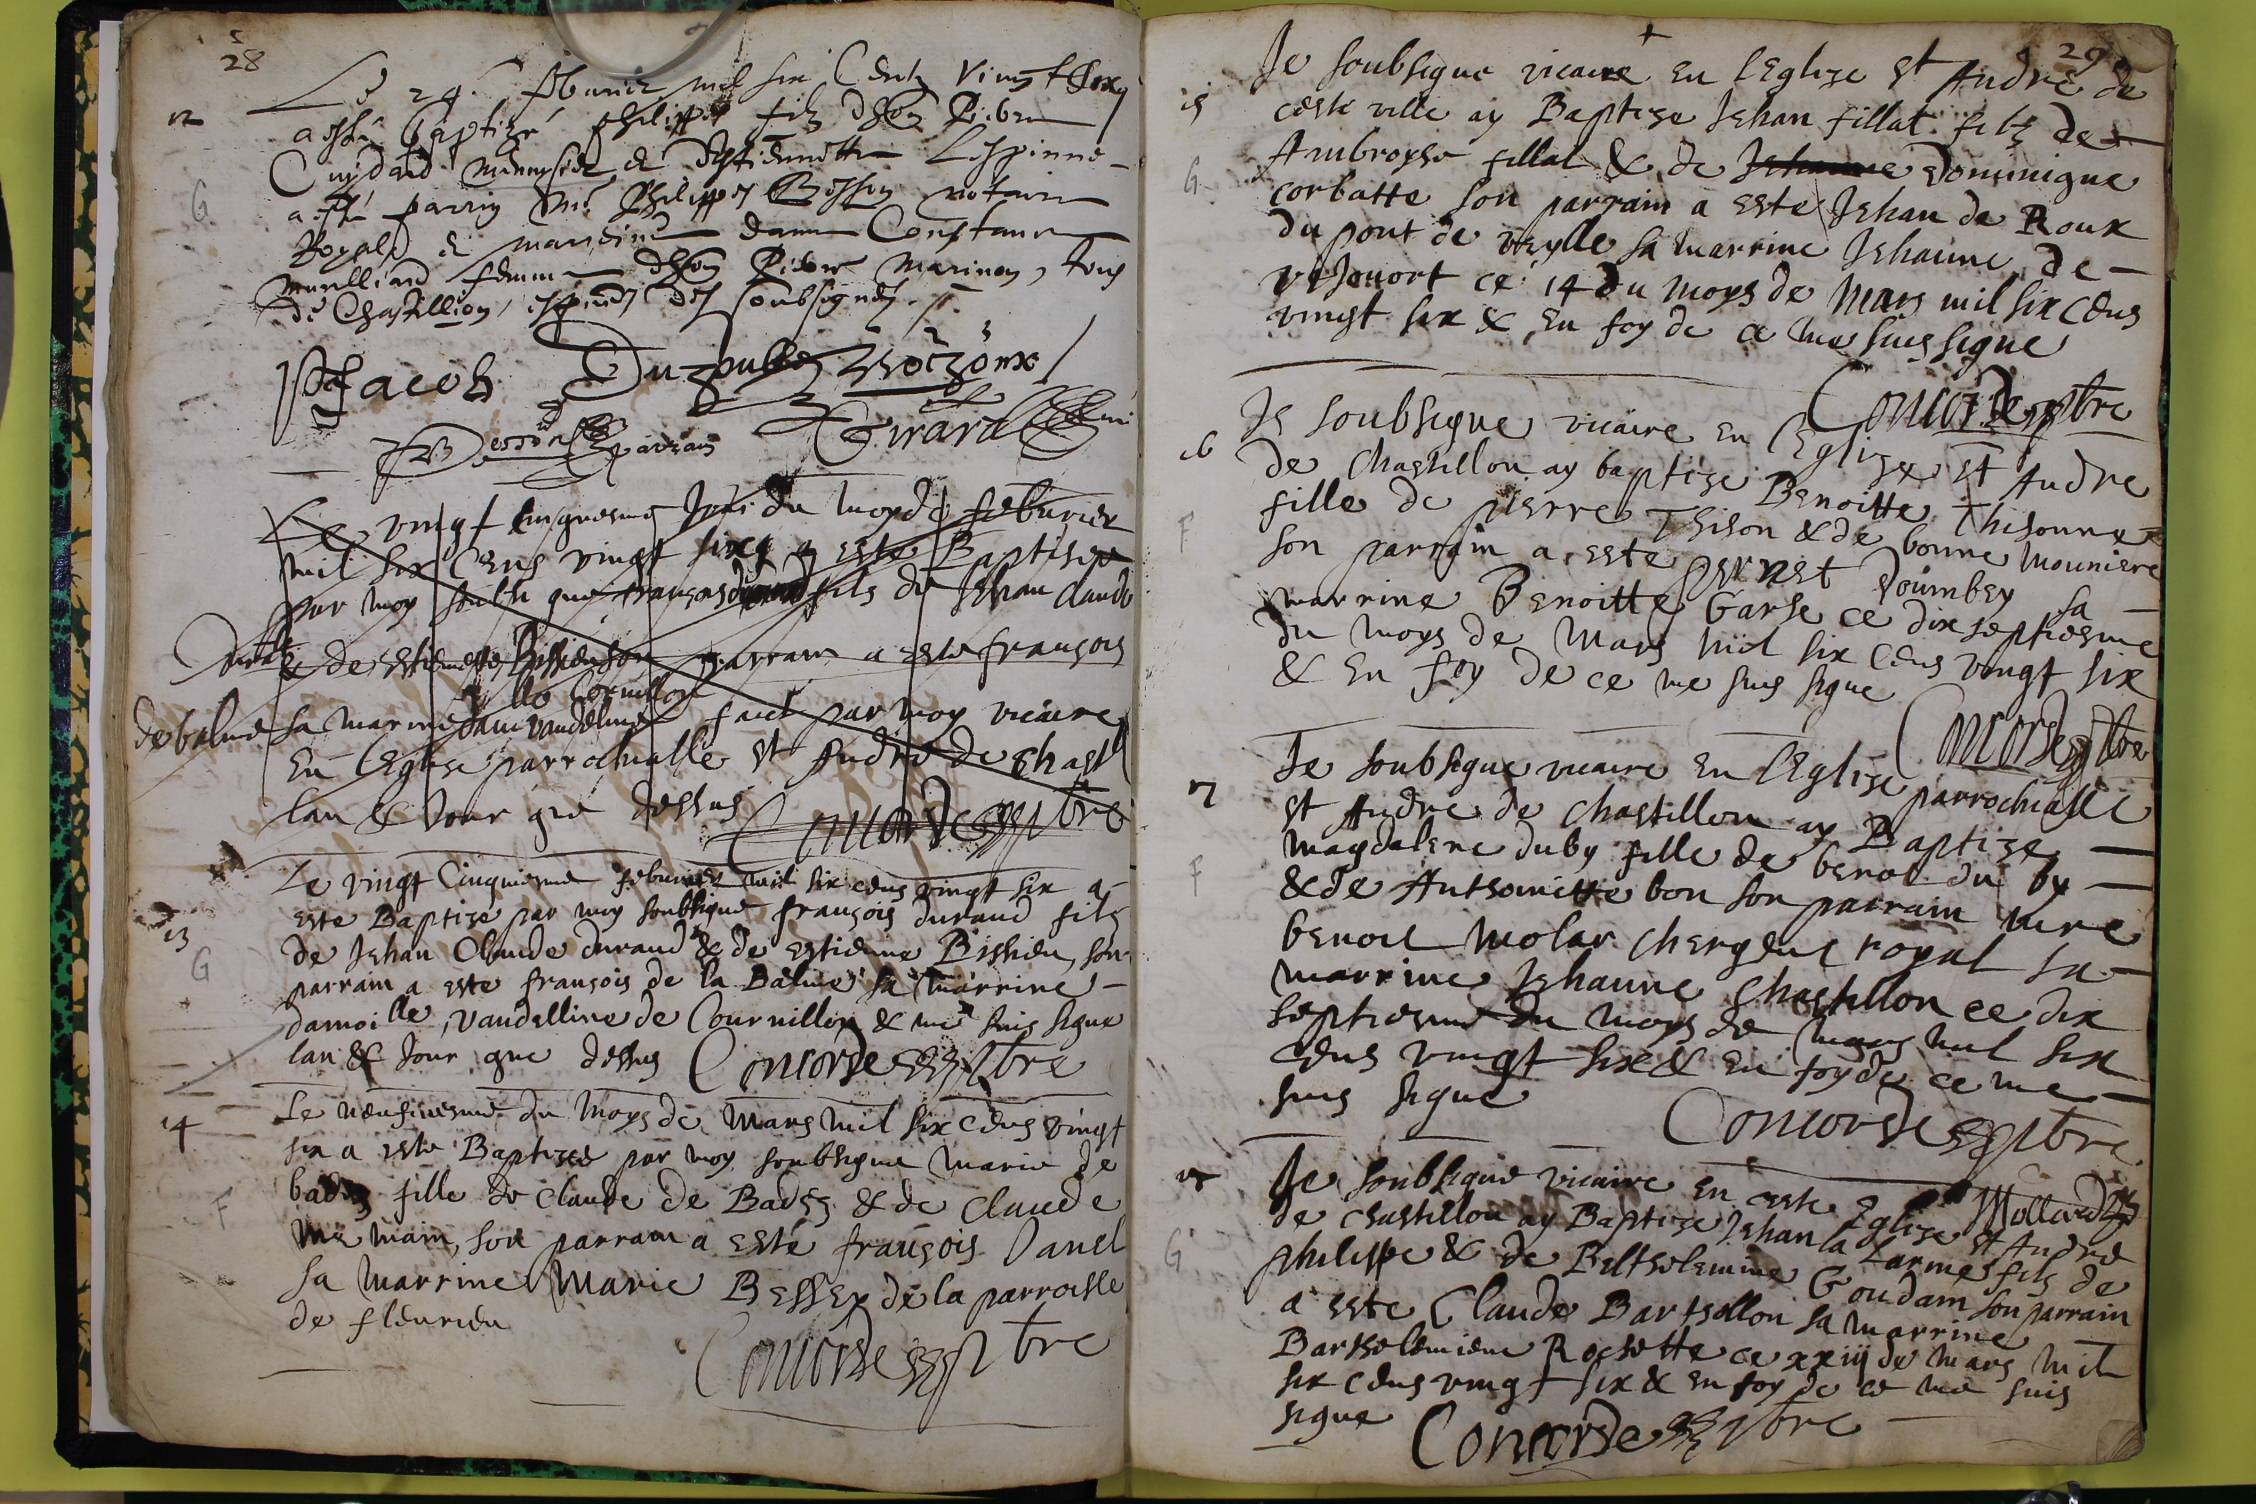 28
12
Le 24. febvrier mil six Centz vingt six
a esté baptizé philippe filz dhon. Pierre
Cuydard menuysier & destiennette Lespinne
G
a esté parrin Me Philippes Besson notaire
Royal & marrine dame Constance
femme dhon Pierre Marinon, tous
de Chastillion, es presences des soubsignés
Jacob
Besson parrain
Girard
Le vingt cinquiesme jour du moys de feburier
mil six cens vingt six a este Baptise
par moy soubsigne françois durand fils de Jehan claude
durand & de estiennette Bissieu son parrain a este françois
lle Cornillon
de balme sa marrine dam vandeline faict par moy vicaire
en leglise parrochialle st Andre de chastl
lan & Jour que dessus Concorde pbre
Le vingt Cinquiesme feburier mil six cens vingt six a
13
este Baptise par moy soubsigne françois durand fils
G
de Jehan Claude durand & de estienne Bissieu, son
parrain a este françois de la Balme sa marrine
damoille, Vandelline de Cournillon & me suis signe
lan & Jour que dessus Concorde pbre
14
Le neufiesme du moys de Mars mil six cens vingt
six a este Baptisee par moy soubsigne Marie de
F
badez fille de Claude de Badez & de Claude
son parrain a esté françois Danel
sa marrine Marie Bessey de la parroisse
de fleurieu
Concorde pbre
29
Je soubsigne vicaire en lEglize st Andre de
15
ceste ville ay Baptize Jehan fillat filz de
G
Ambroyse fillat & de Jehanne Dominique
corbatte son parrain a este Jehan de Roux
du pont de veylle sa marrine Jehanne de
ce 14 du moys de Mars mil six cens
vingt six & en foy de ce me suis signe
Concorde pbre
16
Je soubsigne vicaire en lEglize st Andre
de Chastillon ay baptize Benoitte Thisonne
F
fille de pierre Thison & de bonne mouniere
son parrain a este pernet sa
marrine Benoitte Garse ce dix septiesme
du moys de Mars mil six cens vingt six
& en foy de ce me suis signe
Concorde pbre
17
Je soubsigne vicaire en lEglize parrochialle
st Andre de Chastillon ay Baptize
F
Magdalene duby fille de benoit du by
& de Anthoinette bon son parrain
benoit Molar chergent royal sa
marrine Jehanne Chastillon ce dix
septiesme du moys de Mars mil six
cens vingt six & en foy de ce me
suis signe
Concorde pbre
Mollard
Je soubsigne vicaire en ceste Eglize st Andre
de Chastillon ay Baptize Jehan la Larme fils de
G
philippe & de Beltholemine Goudam son parrain
a este Claude Barthollon sa marrine
Barthelemiene Rochette ce xxiij de Mars mil
six cens vingt six & en foy de ce me suis
signe
Concorde pbre